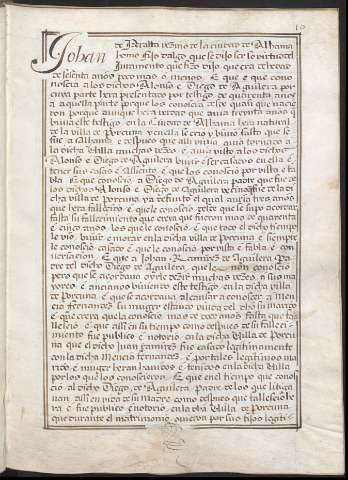 10
Johan de Peralta vezino de la ciudad de Alhama
home hijo dalgo que se dijo ser so virtud del
Juramento que hizo dijo que era de hedad
de sesenta años poco mas o menos. E que e que cono
noscia a los dichos Alonso e Diego de Aguilera por
cuya parte hera presentado por testigo de quarenta años
a aquella parte porque los conoscia desde quasi que nacie
ron porque aunque hera verdad que avia treynta años q
bivia este testigo en la ciudad de Alhama hera natural
de la villa de Porcuna y en ella se crio y bivio fasta que se
fue a Alhama e despues que alli bivia avia tornado a
la dicha Villa muchas vezes e avia visto a los dichos
Alonso e Diego de Aguilera bivir e ser casados en ella e
tener sus casas e Assiento e que los conoscia por vista e fa
bla E que conoscio a Diego de Aguilera padre que fue de
los dichos Alonso e Diego de Aguilera vezino que fue de la di
cha villa de Porcuna ya defunto el qual avia tres años
que hera fallecido e que le conoscio desde que se supo acordar
fasta su fallecimiento que creya que fueron mas de quarenta
e cinco años los que le conoscio e que todo el dicho tiempo
le vio bivir e morar en la dicha villa de Porcuna e siempre
le conoscio e que le conoscio por vista e fabla e con
versacion E que a Johan Ramirez de Aguilera Pa
dre del dicho Diego de Aguilera, que le non conoscio
pero que se acordava oyrle dezir muchas vezes a sus ma
yores e ancianos biviendo este testigo en la dicha villa
de Porcuna E que se acordava alcansar a conoscer a Men
cia Hernandez su muger estando biuda del dho su marido
e que creya que la conoscio mas de doze años fasta que fa
llescio e que assi en su tiempo como despues de su falleci-
miento fue publico e notorio en la dicha Villa de Porcu
na que el dicho Juan Ramirez fue casado legitimamente
con la dicha Mencia Hernandez e por tales legitimos ma
rido e muger heran havidos e tenidos en la dicha Villa
por los que los conoscieron. E que en el tiempo que conos
cio al dicho Diego de Aguilera Padre de los que litiga
van assi en vida de su Madre como despues que fallescio he
ra e fue publico e notorio en la dha Villa de Porcuna
que durante el matrimonio ovieron por sus hijos legiti-